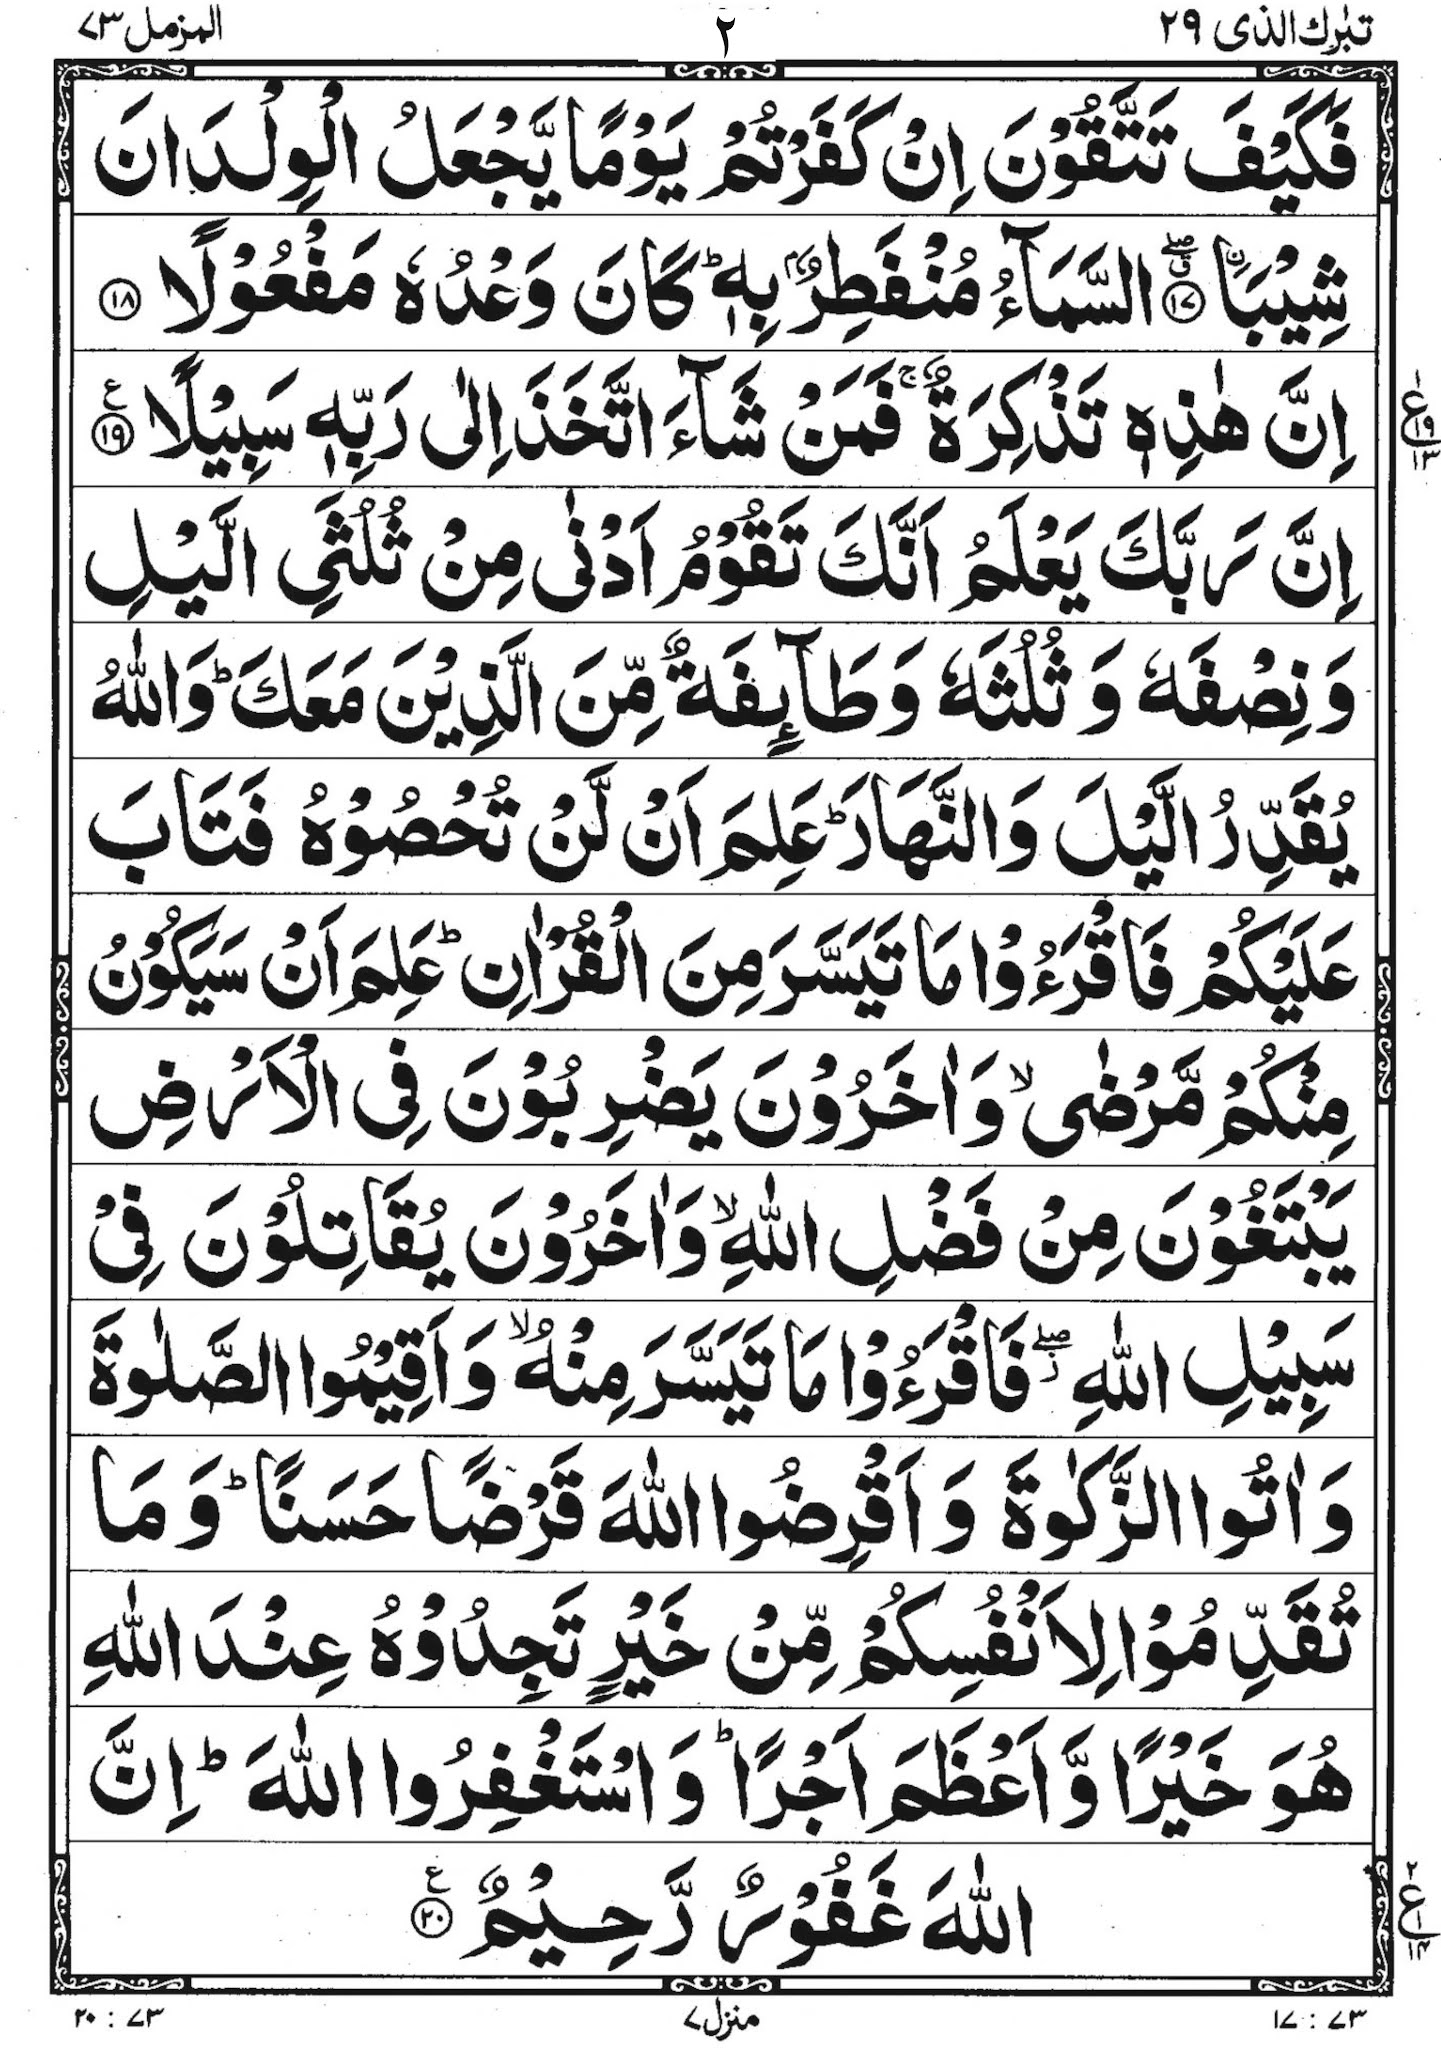 تبٰرك الذى ٢٩ ٢ المزمل ٧٣
فَكَيْفَ تَتَّقُوْنَ اِنْ كَفَرْتُمْ يَوْمًا يَّجْعَلُ الْوِلْدَانَ
شِيْبَاۨ ۖۗ ﴿١٧﴾ السَّمَآءُ مُنْفَطِرٌۢ بِهٖ ؕ كَانَ وَعْدُهٗ مَفْعُوْلًا ﴿١٨﴾
اِنَّ هٰذِهٖ تَذْكِرَةٌ ۚ فَمَنْ شَآءَ اتَّخَذَ اِلٰى رَبِّهٖ سَبِيْلًا ﴿١٩﴾ ع
اِنَّ رَبَّكَ يَعْلَمُ اَنَّكَ تَقُوْمُ اَدْنٰى مِنْ ثُلُثَيِ الَّيْلِ
وَنِصْفَهٗ وَ ثُلُثَهٗ وَطَآٮِٕفَةٌ مِّنَ الَّذِيْنَ مَعَكَ ؕ وَاللّٰهُ
يُقَدِّرُ الَّيْلَ وَالنَّهَارَ ؕ عَلِمَ اَنْ لَّنْ تُحْصُوْهُ فَتَابَ
عَلَيْكُمْ فَاقْرَءُوْا مَا تَيَسَّرَ مِنَ الْقُرْاٰنِ ؕ عَلِمَ اَنْ سَيَكُوْنُ
مِنْكُمْ مَّرْضٰى ۙ وَاٰخَرُوْنَ يَضْرِبُوْنَ فِى الْاَرْضِ
يَبْتَغُوْنَ مِنْ فَضْلِ اللّٰهِ ۙ وَاٰخَرُوْنَ يُقَاتِلُوْنَ فِىْ
سَبِيْلِ اللّٰهِ ۖ ز فَاقْرَءُوْا مَا تَيَسَّرَ مِنْهُ ۙ وَاَقِيْمُوا الصَّلٰوةَ
وَاٰتُوا الزَّكٰوةَ وَاَقْرِضُوا اللّٰهَ قَرْضًا حَسَنًا ؕ وَمَا
تُقَدِّمُوْا لِاَنْفُسِكُمْ مِّنْ خَيْرٍ تَجِدُوْهُ عِنْدَ اللّٰهِ
هُوَ خَيْرًا وَّاَعْظَمَ اَجْرًا ؕ وَاسْتَغْفِرُوا اللّٰهَ ؕ اِنَّ
اللّٰهَ غَفُوْرٌ رَّحِيْمٌ ﴿٢٠﴾ ع
٧٣ : ١٧ منزل ٧ ٧٣ : ٢٠